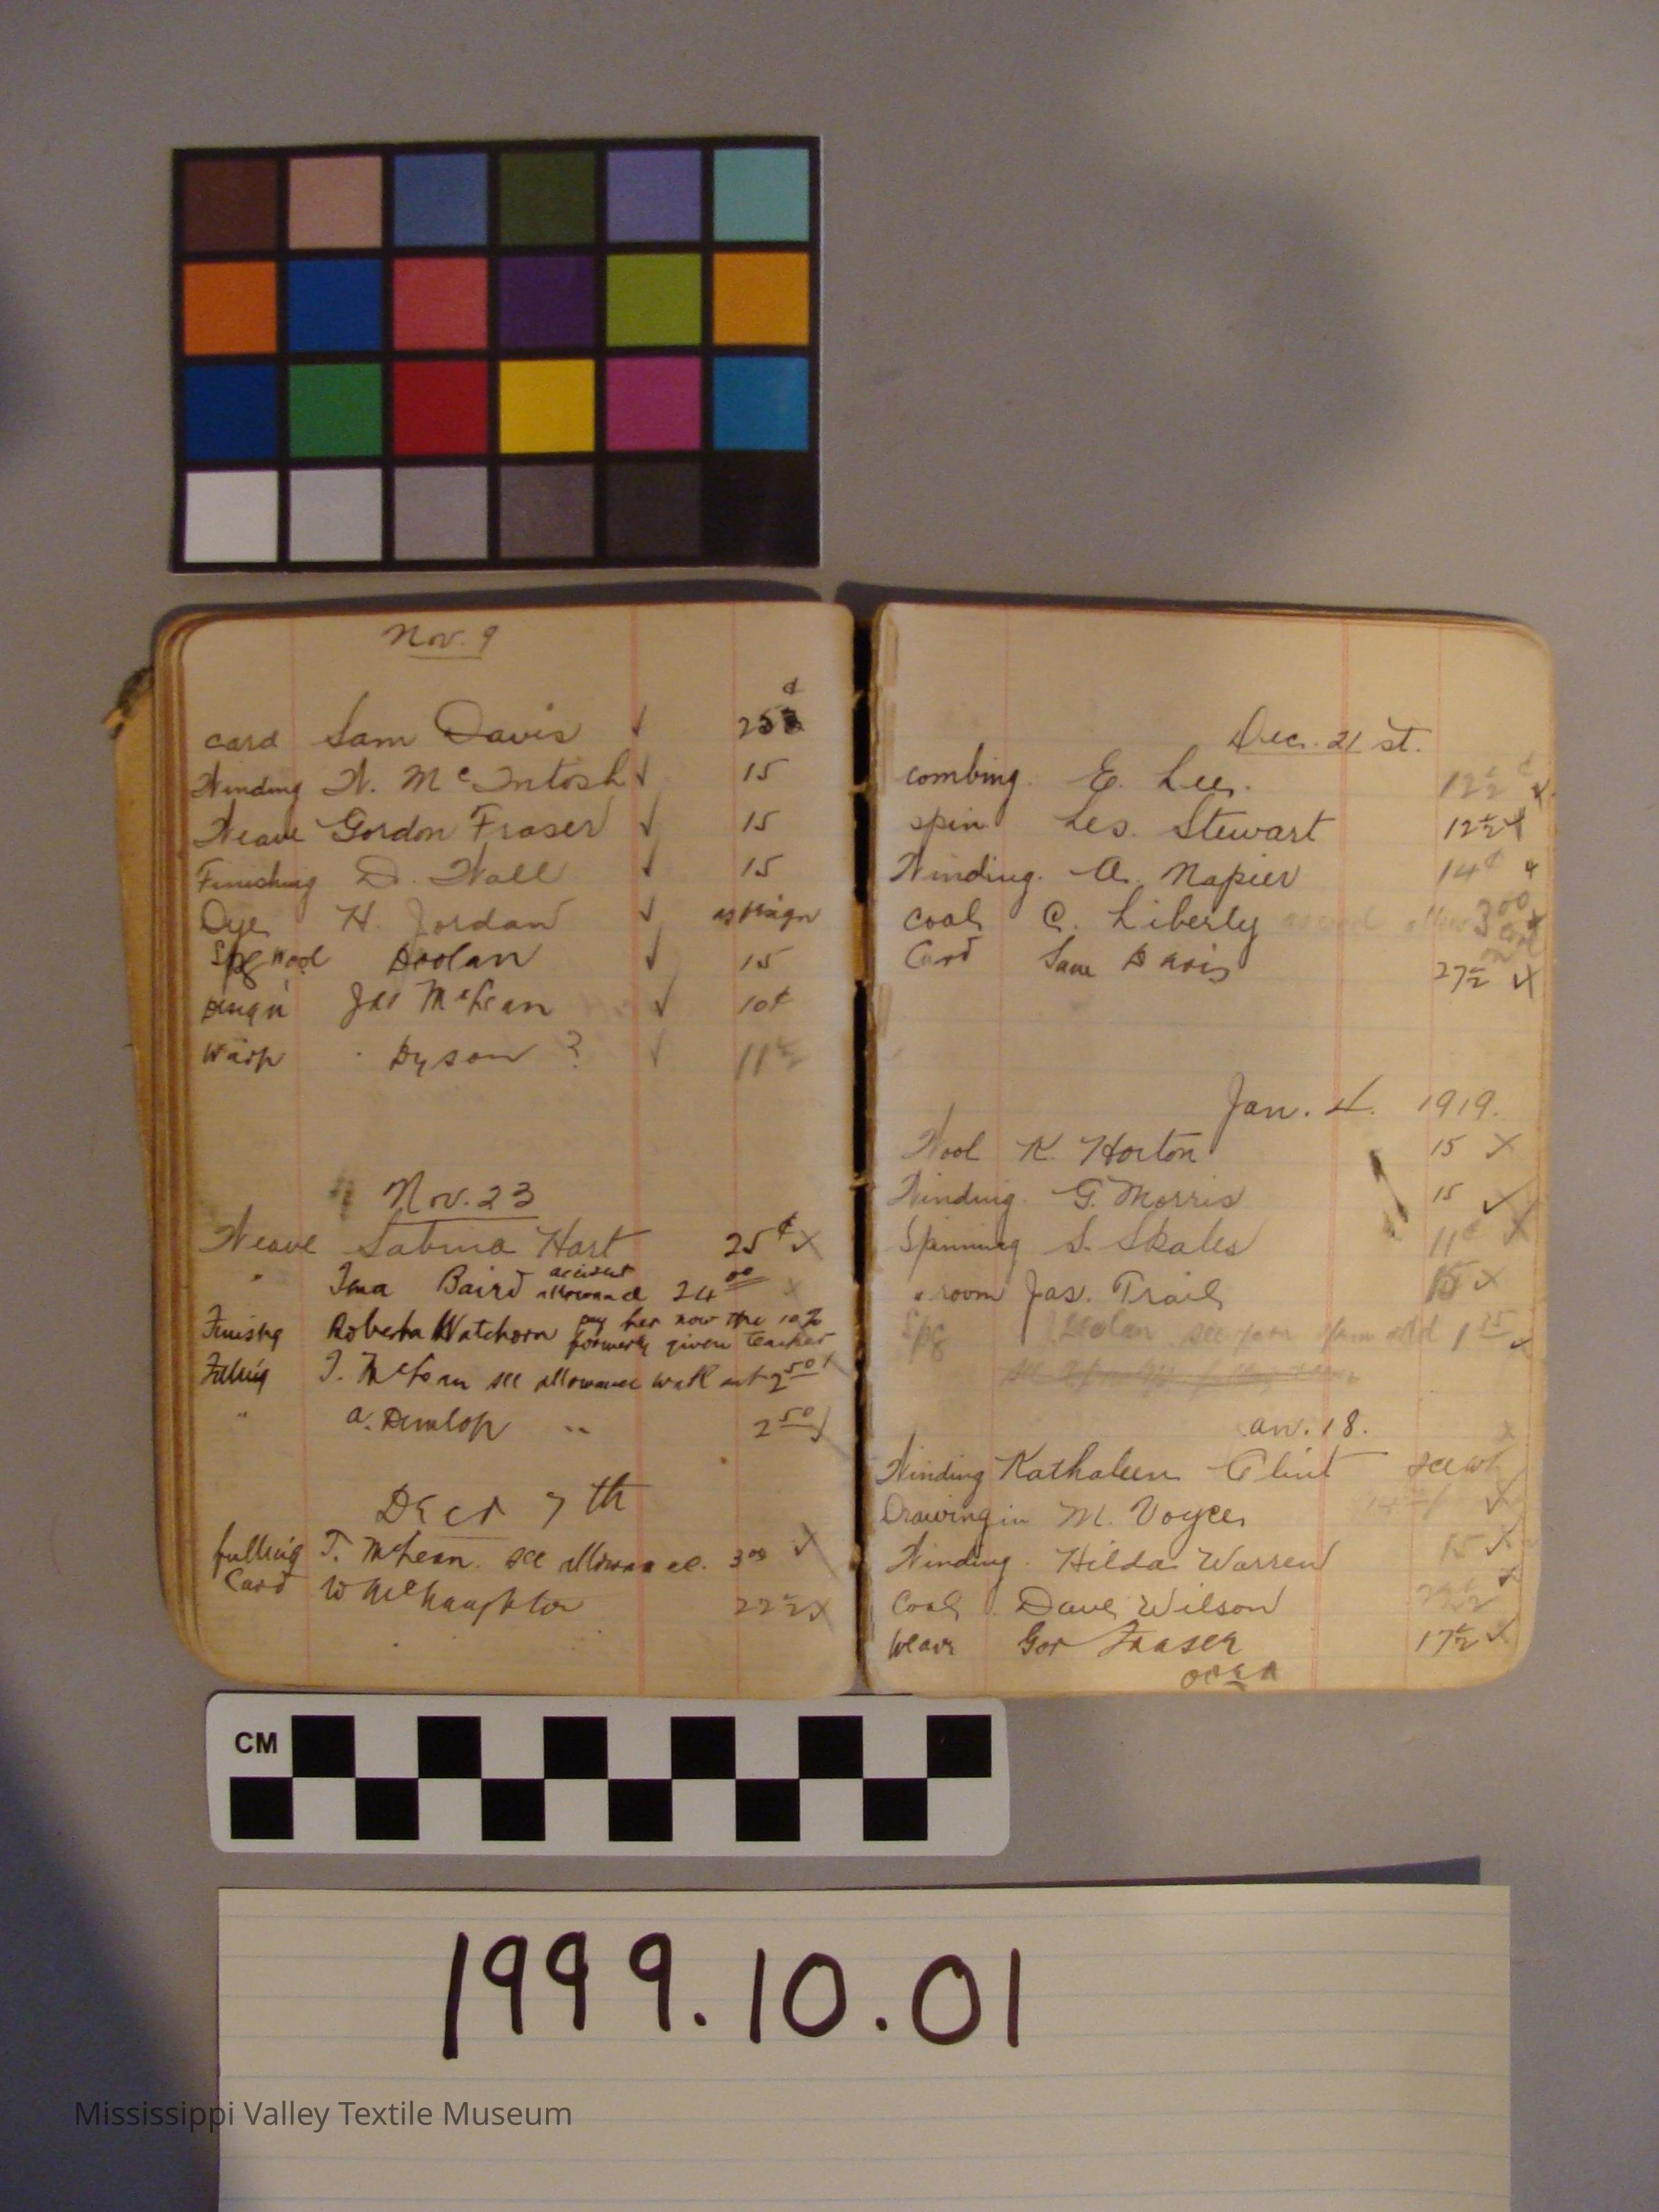 Nov. 9
card Sam Davis ✓ 25 ¢
Winding W. McIntosh ✓ 15
Weave Gordon Fraser ✓ 15
Finishing D. Wall ✓ 15
Dye H. Jordan ✓
Spg Wool Doolan ✓ 15
Jas McLean ✓ 10¢
Warp Dyson ? ✓ 11½
Nov. 23
Weave Sabina Hart 25¢ X
" Ina Baird accident allowance 24 00
Finishg Roberta Watchorn pay her now the 10%
formerly given teacher
Fulling T. McLean see allowance 2 50
" A. Dunlop " 2 50
Decr 7th
fulling T. McLean. see allowance. 3 00 X
Card W McNaughton 22½ X
Dec. 21 st.
combing. E. Lee. 12½ ¢
spin Les. Stewart 12½
Winding. A. Napier 14¢
Coal C. Liberty 3 00
Card Sam Davis 27½
Jan. 4. 1919.
Wool K. Horton 15 X
Winding. G. Morris 15
Spinning S. Skales 11¢
" room Jas. Trail 15 X
Spg Doolan see 1 25
an. 18.
Winding Kathaleen Clint
Drawing in M. Voyce
Winding. Hilda Warren 15
Coal Dave Wilson
Weave Gor Fraser 17½
over
CM
1999.10.01
Mississippi Valley Textile Museum